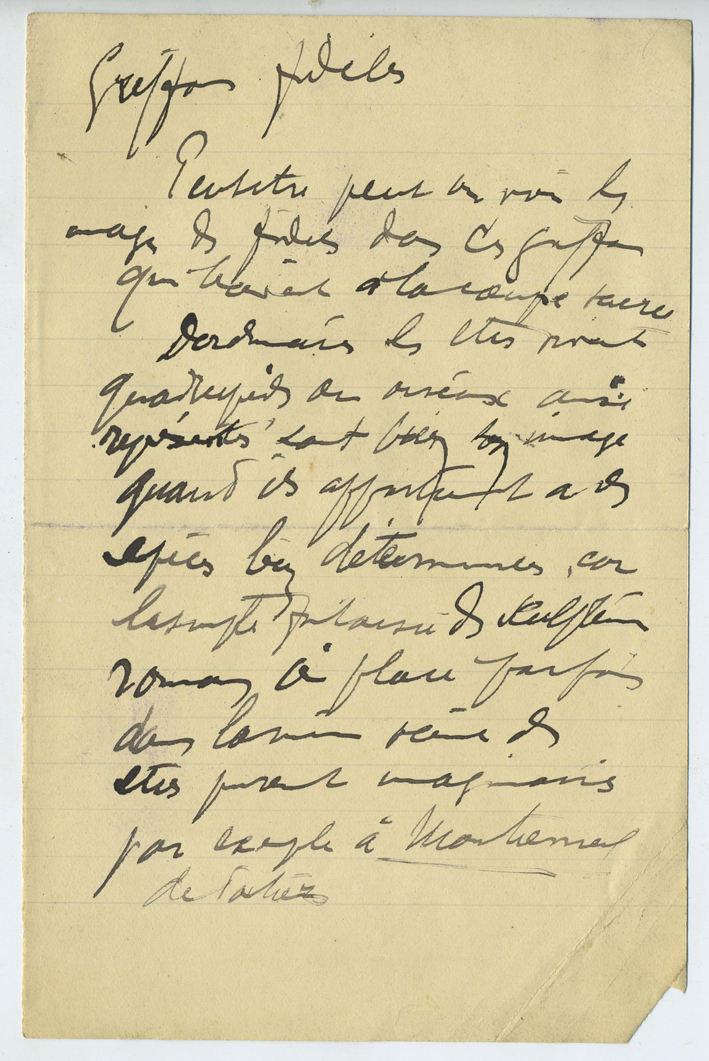 Griffons fidèles
Peut être peut on voir les
images des fidèles dans ces griffons
qui boivent à la coupe sacrée
D'ordinaire les êtres vivants
quadrupèdes ou oiseaux ainsi
représentés sont bien image
quand ils appartiennent a des
espèces bien déterminées, car
la simple fantaisie des sculpteurs
romans a place parfois
dans la même scène des
êtres purement imaginaires
par exemple à Montierneuf
de Poitiers